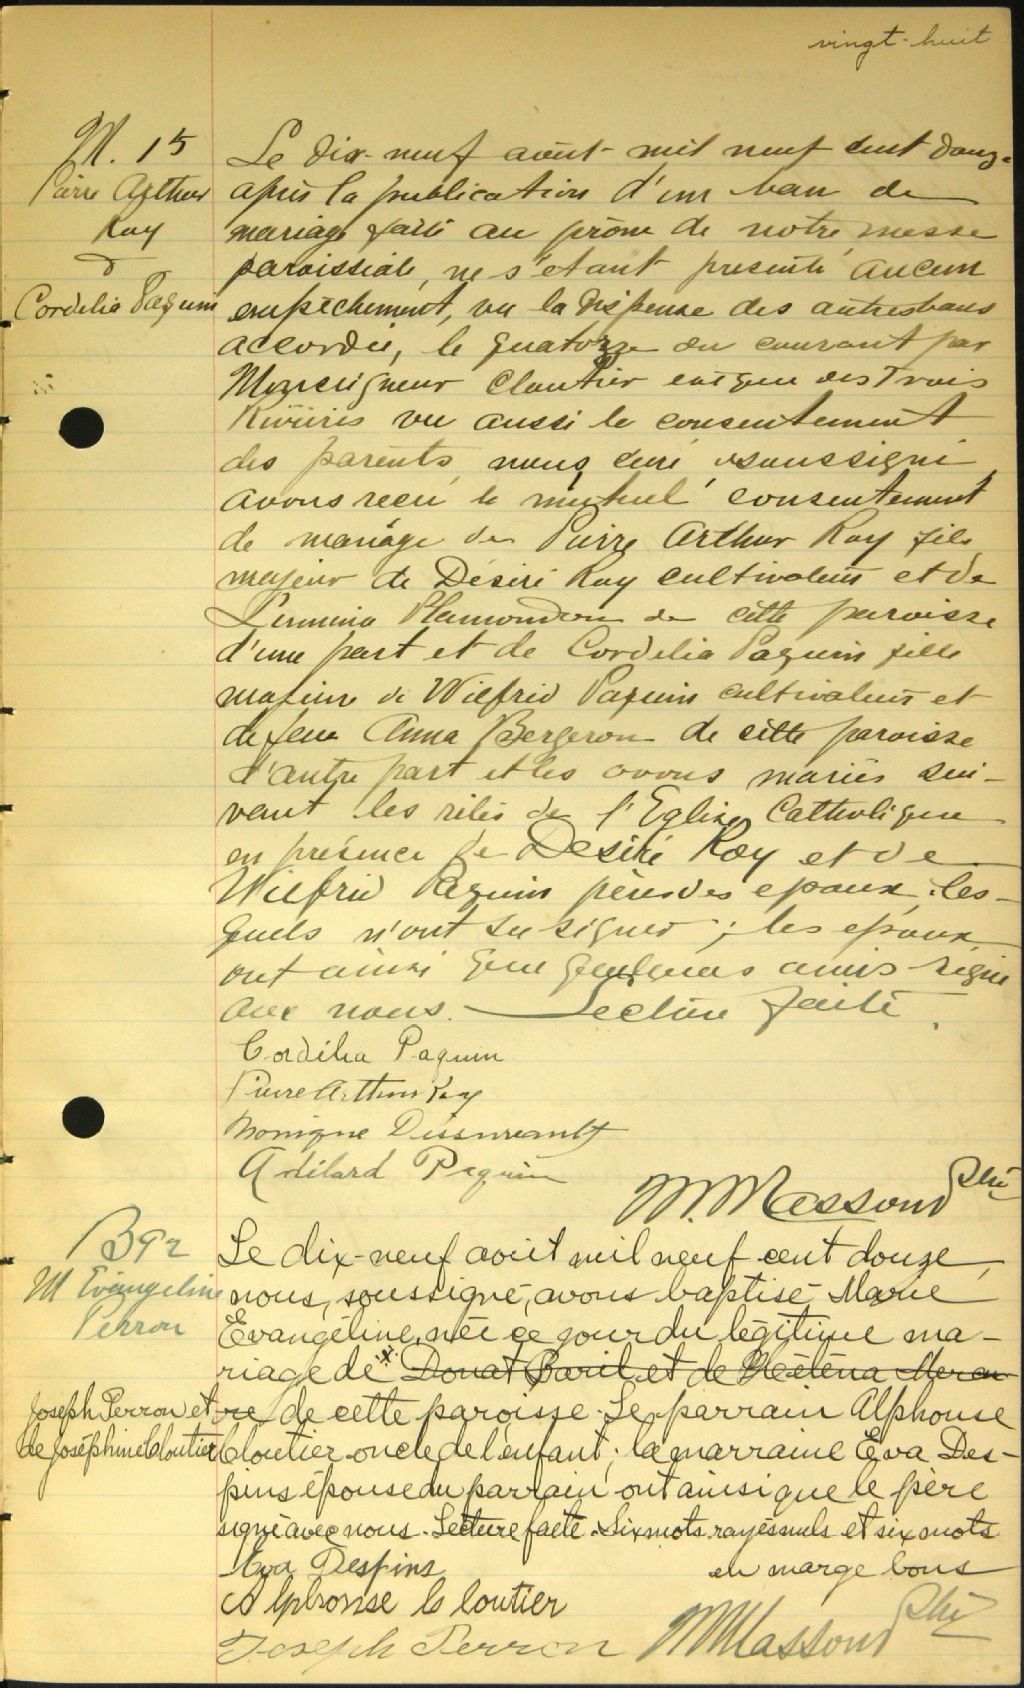 vingt-huit
M. 15
Pierre Arthur
Roy
&
Cordelia Paquin
Le dix-neuf août mil neuf cent douze
après la publication d'un ban de
mariage faite au prône de notre messe
paroissiale, ne s'étant présenté aucun
empêchement, vu la dispense des autres bans
accordée, le quatorze du courant par
Monseigneur Cloutier évêque des Trois
Rivières vu aussi le consentement
des parents, nous curé soussigné
avons reçu le mutuel consentement
de mariage de Pierre Arthur Roy fils
majeur de Désiré Roy cultivateur et de
Plamondon de cette paroisse
d'une part et de Cordelia Paquin fille
majeure de Wilfrid Paquin cultivateur et
de feue Anna Bergeron de cette paroisse
d'autre part et les avons mariés sui-
vant les rites de l'Eglise Catholique
en présence de Désiré Roy et de
Wilfrid Paquin pères des époux, les-
quels n'ont su signer ; les époux
ont ainsi que quelques amis signé
avec nous. — Lecture faite.
Cordélia Paquin
Pierre Arthur Roy
Monique Dessureault
Adélard Paquin
M. Massons Ptre
B 92
M Evangeline
Perron
Le dix-neuf août mil neuf cent douze,
nous, soussigné, avons baptisé Marie
Evangéline, née ce jour du légitime ma-
riage de Donat Baril et de Héléna Merca-
Joseph Perron et
de Joséphine Cloutier
re de cette paroisse. Le parrain Alphonse
Cloutier oncle de l'enfant; la marraine Eva Des-
pins épouse du parrain ont ainsi que le père
signé avec nous. Lecture faite. Six mots rayés nuls et six mots
en marge bons
Eva Despins
Alphonse Cloutier
Joseph Perron
M Massons Ptre